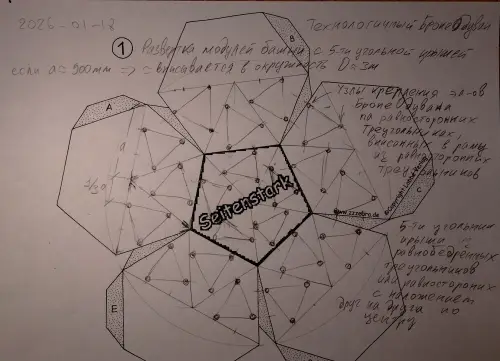 2026-01-18
Технологичный Бронедувал
1 Развертка модулей башни с 5-ти угольной крышей
если a ≈ 900мм => ≈ вписывается в окружность D≈3м
Узлы крепления эл-ов
бронедувала
на равносторонних
треугольниках,
вписанных в раму
из равносторонних
треугольников
A
B
a
Seitenstark
www.zzzebra.de
C
5-ти угольник
крыши
равнобедренных
треугольников
или равносторонних
с наложением
друг на друга по
центру
E